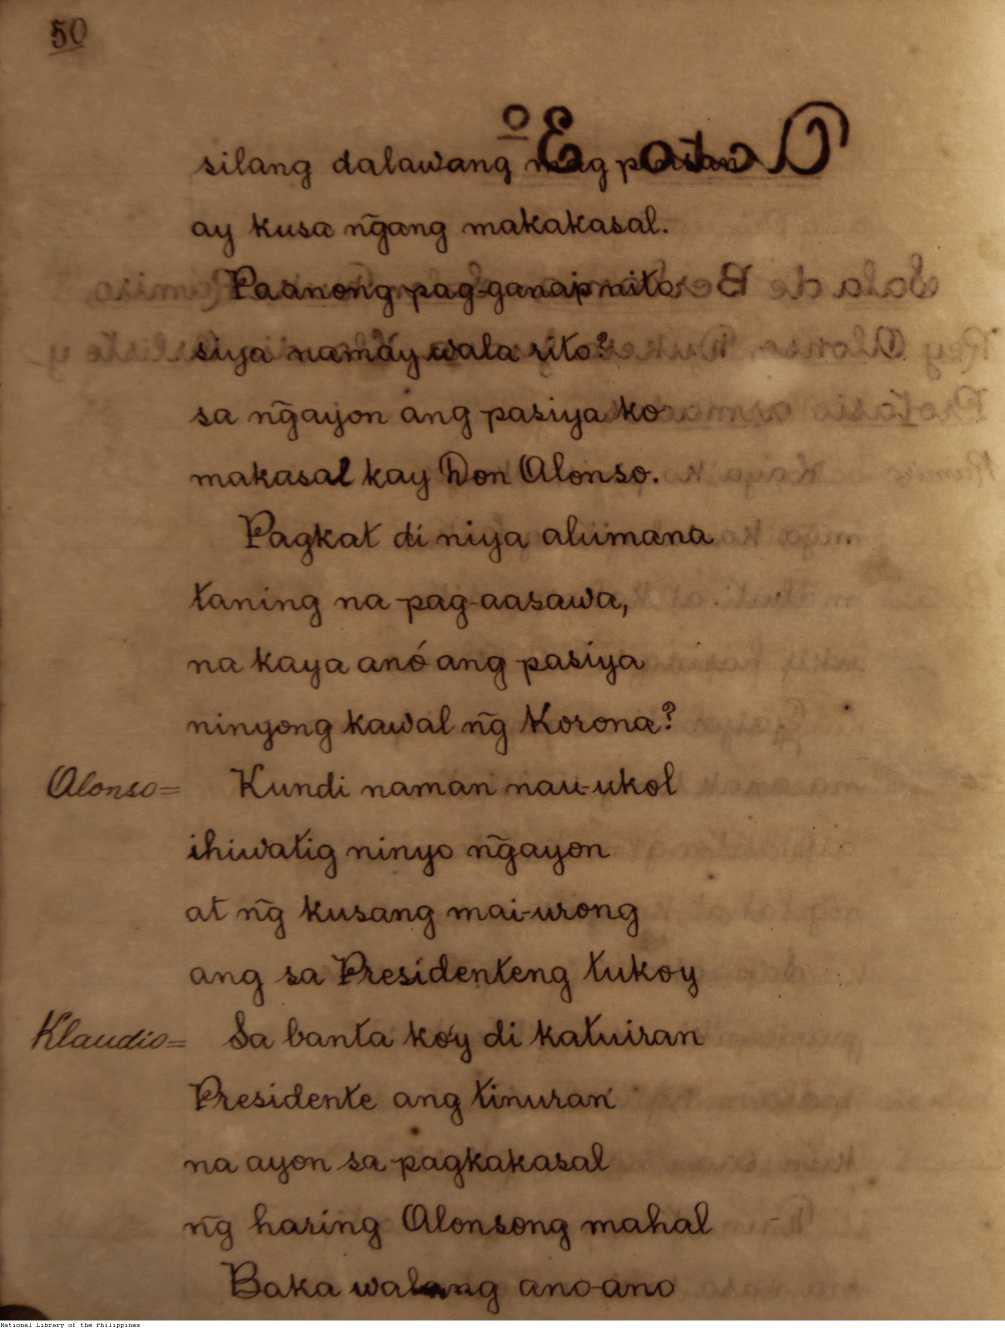 50
silang dalawang mag pinsan
ay kusa ng̃ang makakasal.
Paanong pag-ganap nito
siya namáy wala rito?
sa ng̃ayon ang pasiya ko
makasal kay Don Alonso.
Pagkat di niya alumana
taning na pag-aasawa,
na kaya anó ang pasiya
ninyong kawal ng̃ Korona?
Alonso= Kundi naman nau-ukol
ihiwatig ninyo ng̃ayon
at ng̃ kusang mai-urong
ang sa Presidenteng tukoy
Klaudio= Sa banta ko'y di katuiran
Presidente ang tinuran
na ayon sa pagkakasal
ng̃ haring Alonsong mahal
Baka walang ano-ano
National Library of the Philippines